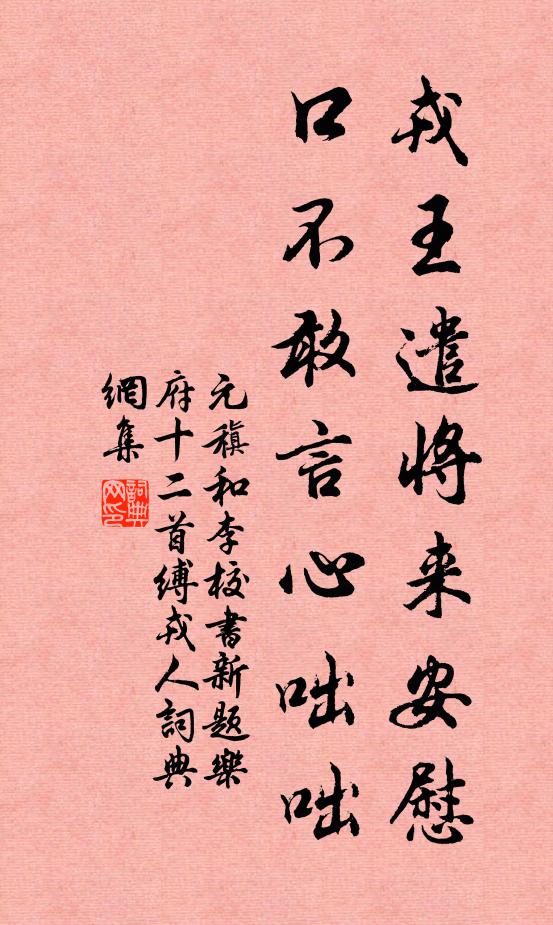 戎王遣将来安慰
口不敢言心咄咄
元稹和李校書新題樂
府十二首縛戎人詞典
網集
詞典网印